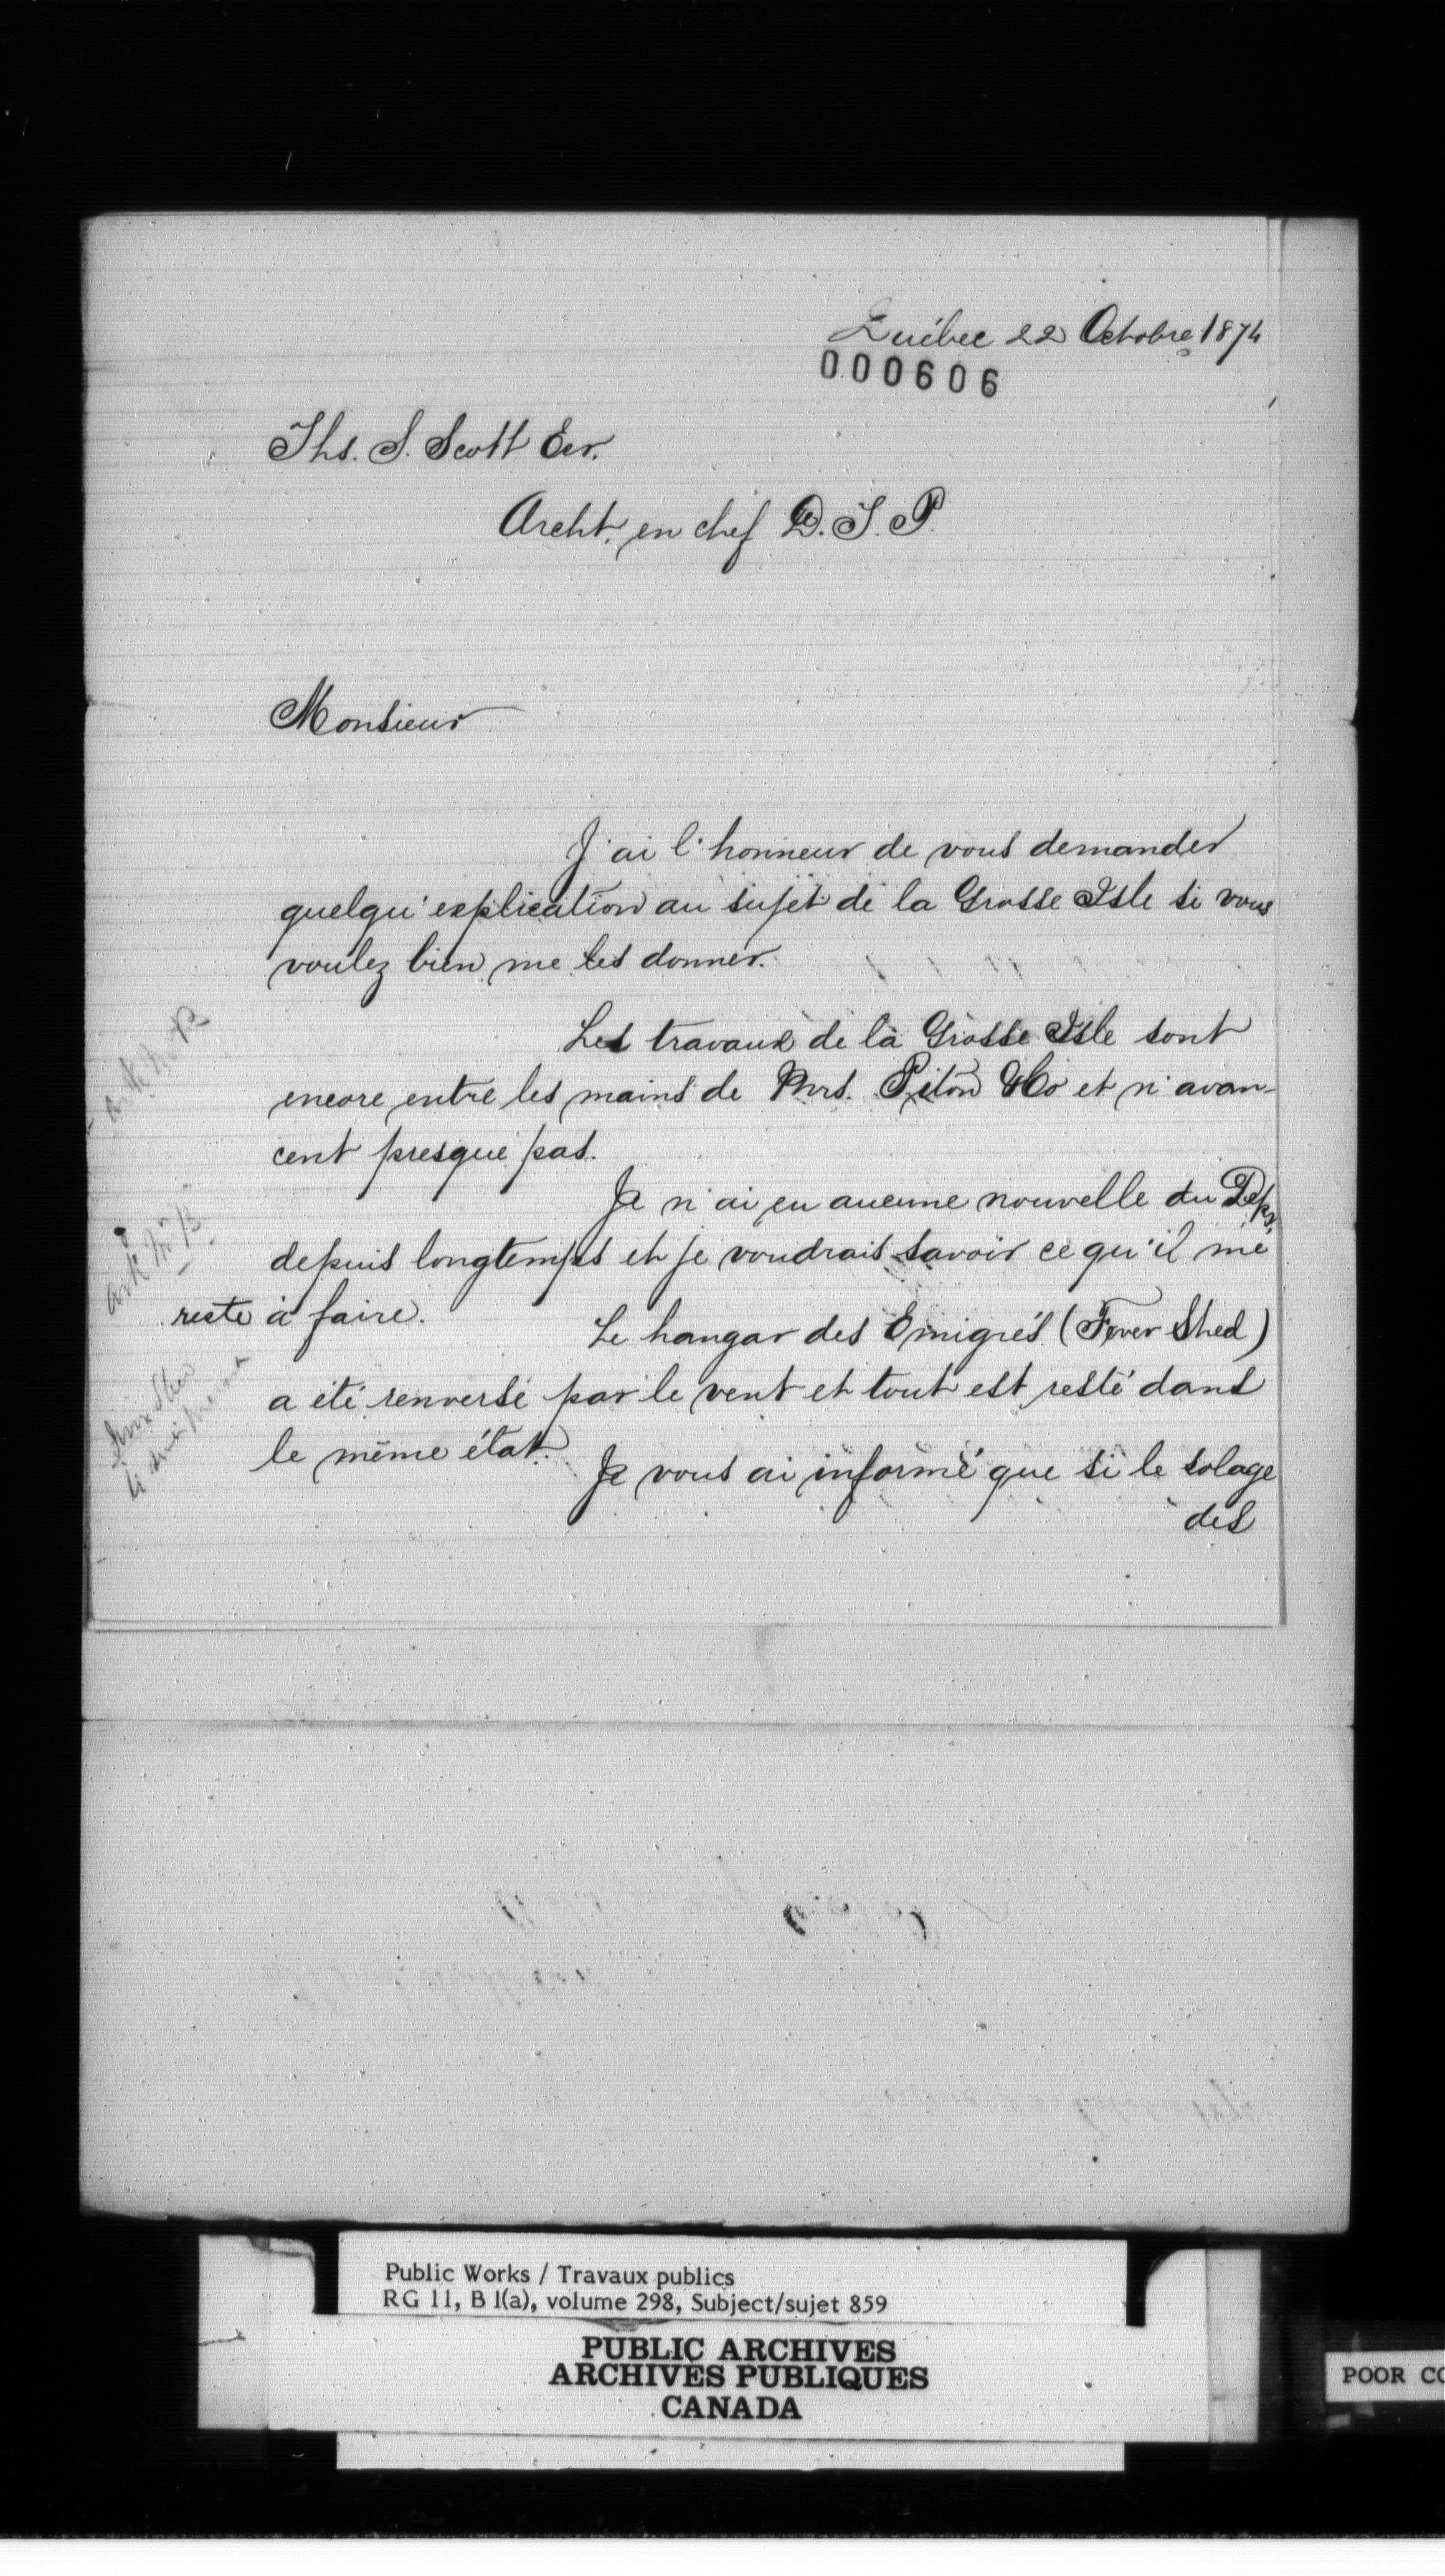 Québec 22 Octobre 1874
000606
Ths. S. Scott Ecr.
Archt. en chef D. T. P.
Monsieur
J'ai l'honneur de vous demander
quelqu'explication au sujet de la Grosse Isle si vous
voulez bien me les donner.
Les travaux de la Grosse Isle sont
encore entre les mains de Mrs. Piton & Co et n'avan-
cent presque pas.
Je n'ai eu aucune nouvelle du Dept.
depuis longtemps et je voudrais savoir ce qu'il me
reste à faire.
Le hangar des Emigrés (Fever Shed)
a été renversé par le vent et tout est resté dans
le même état.
Je vous ai informé que si le solage
des
Public Works / Travaux publics
RG 11, B 1(a), volume 298, Subject/sujet 859
PUBLIC ARCHIVES
ARCHIVES PUBLIQUES
CANADA
POOR CO